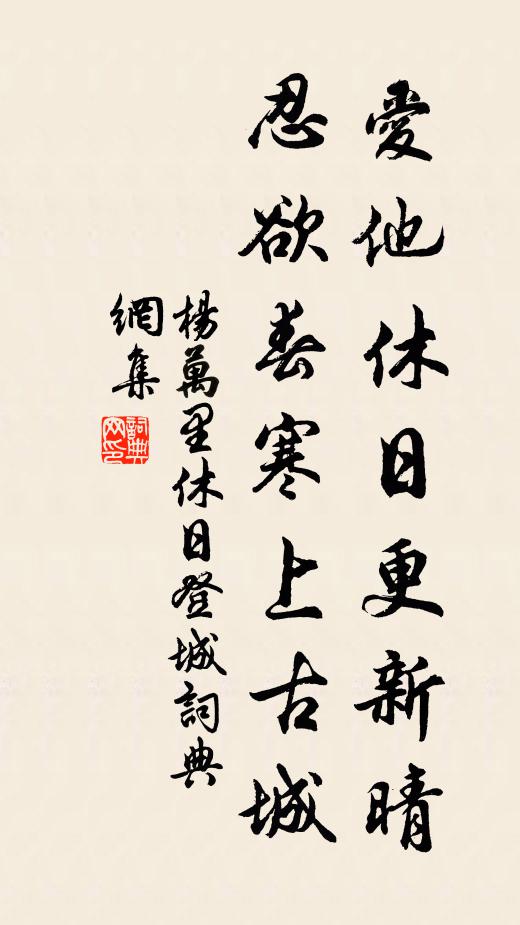 愛他休日更新晴
忍欲春寒上古城
楊萬里休日登城詞典
網集
詞典
网印